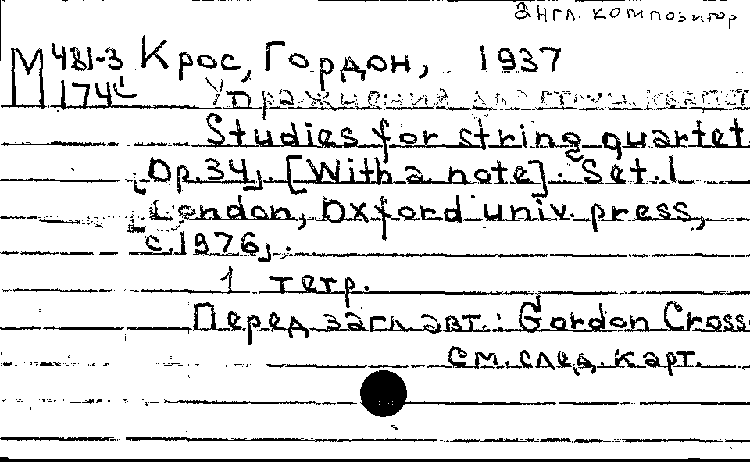 англ. композитор
М 481-3 Крос, Гордон, 1937
174
Упражнения для струн. квартета
Studies for string quartet
Op.34. [With a note]. Set.1
London, Oxford univ. press,
c.1976.
1 тетр.
Перед загл. авт.: Gordon Cross
см. след. карт.